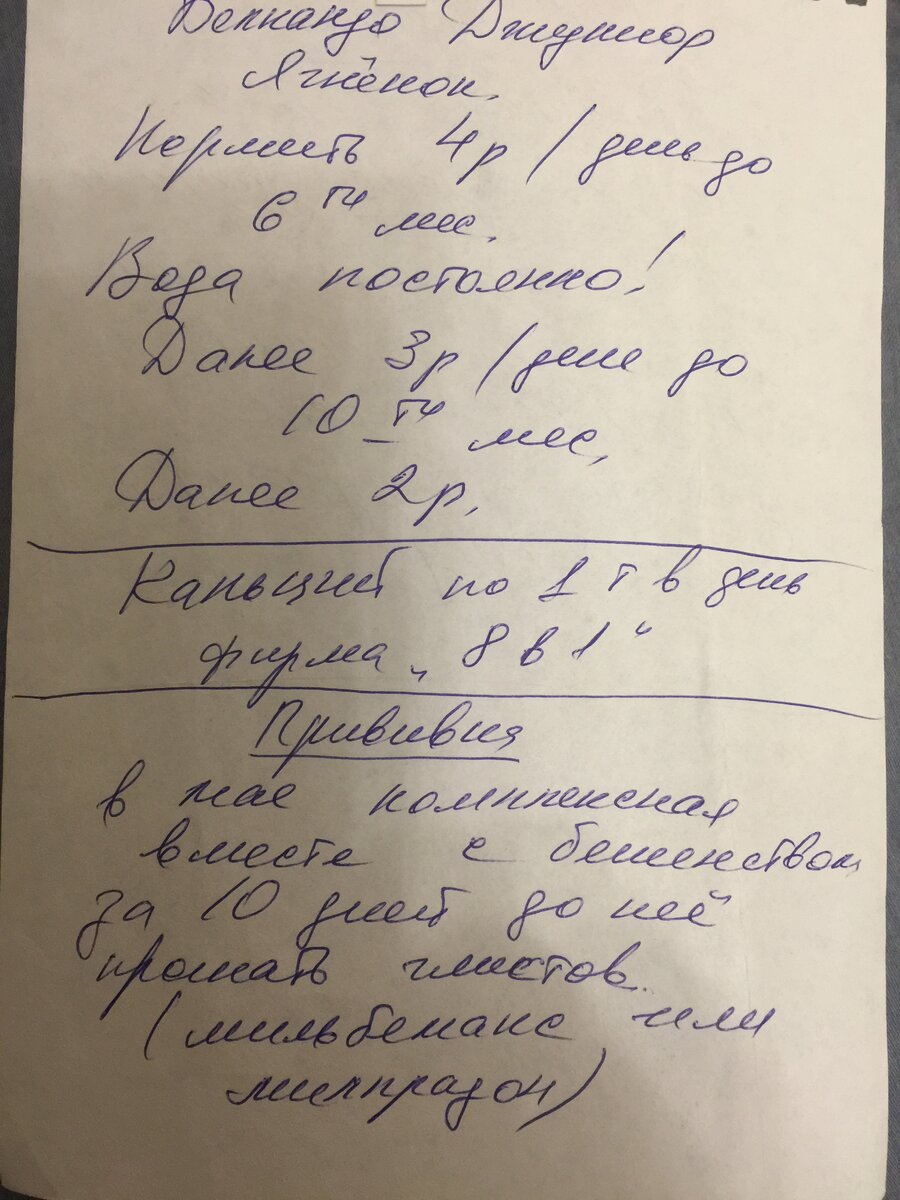 Белкандо Джуниор
Ягнёнок.
Кормить 4р / день до
6ти мес.
Вода постоянно!
Далее 3р / день до
10ти мес.
Далее 2р.
Кальций по 1 т в день
фирма „8 в 1“
Прививки
в мае комплексная
вместе с бешенством
за 10 дней до неё
прогнать глистов.
(мильбемакс или
милпразон)